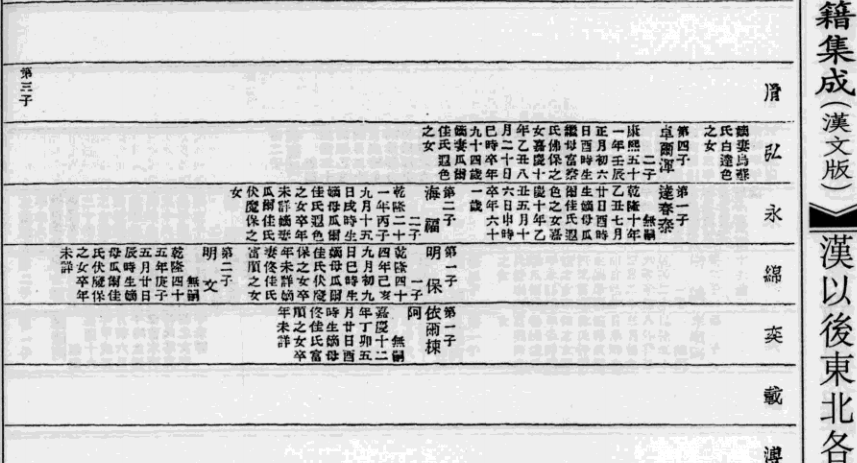 籍集成(漢文版)
漢以後東北各
胤
第三子
弘
嫡妻烏蘇
氏白達色
之女
第四子
卓爾渾
二子
康熙五十
一年壬辰
正月初六
日酉時生
繼母富察
氏佛保之
女嘉慶十
年乙丑八
月二十日
巳時卒年
九十四歲
嫡妻瓜爾
佳氏遐色
之女
永
第一子
達春泰
無嗣
乾隆十年
乙丑七月
廿日酉時
生嫡母瓜
爾佳氏遐
色之女嘉
慶十年乙
丑五月十
六日申時
卒年六十
一歲
第二子
海福
二子
乾隆二十
一年丙子
九月十五
日戌時生
嫡母瓜爾
佳氏遐色
之女卒年
未詳嫡妻
瓜爾佳氏
伏魔保之
女
綿
第一子
明保
一子
乾隆四十
四年己亥
九月初九
日巳時生
嫡母瓜爾
佳氏伏魔
保之女卒
年未詳嫡
妻佟佳氏
富順之女
第二子
明文
無嗣
乾隆四十
五年庚子
五月廿日
辰時生嫡
母瓜爾佳
氏伏魔保
之女卒年
未詳
奕
第一子
依爾棟
阿
無嗣
嘉慶十二
年丁卯五
月廿日酉
時生嫡母
佟佳氏富
順之女卒
年未詳
載
溥